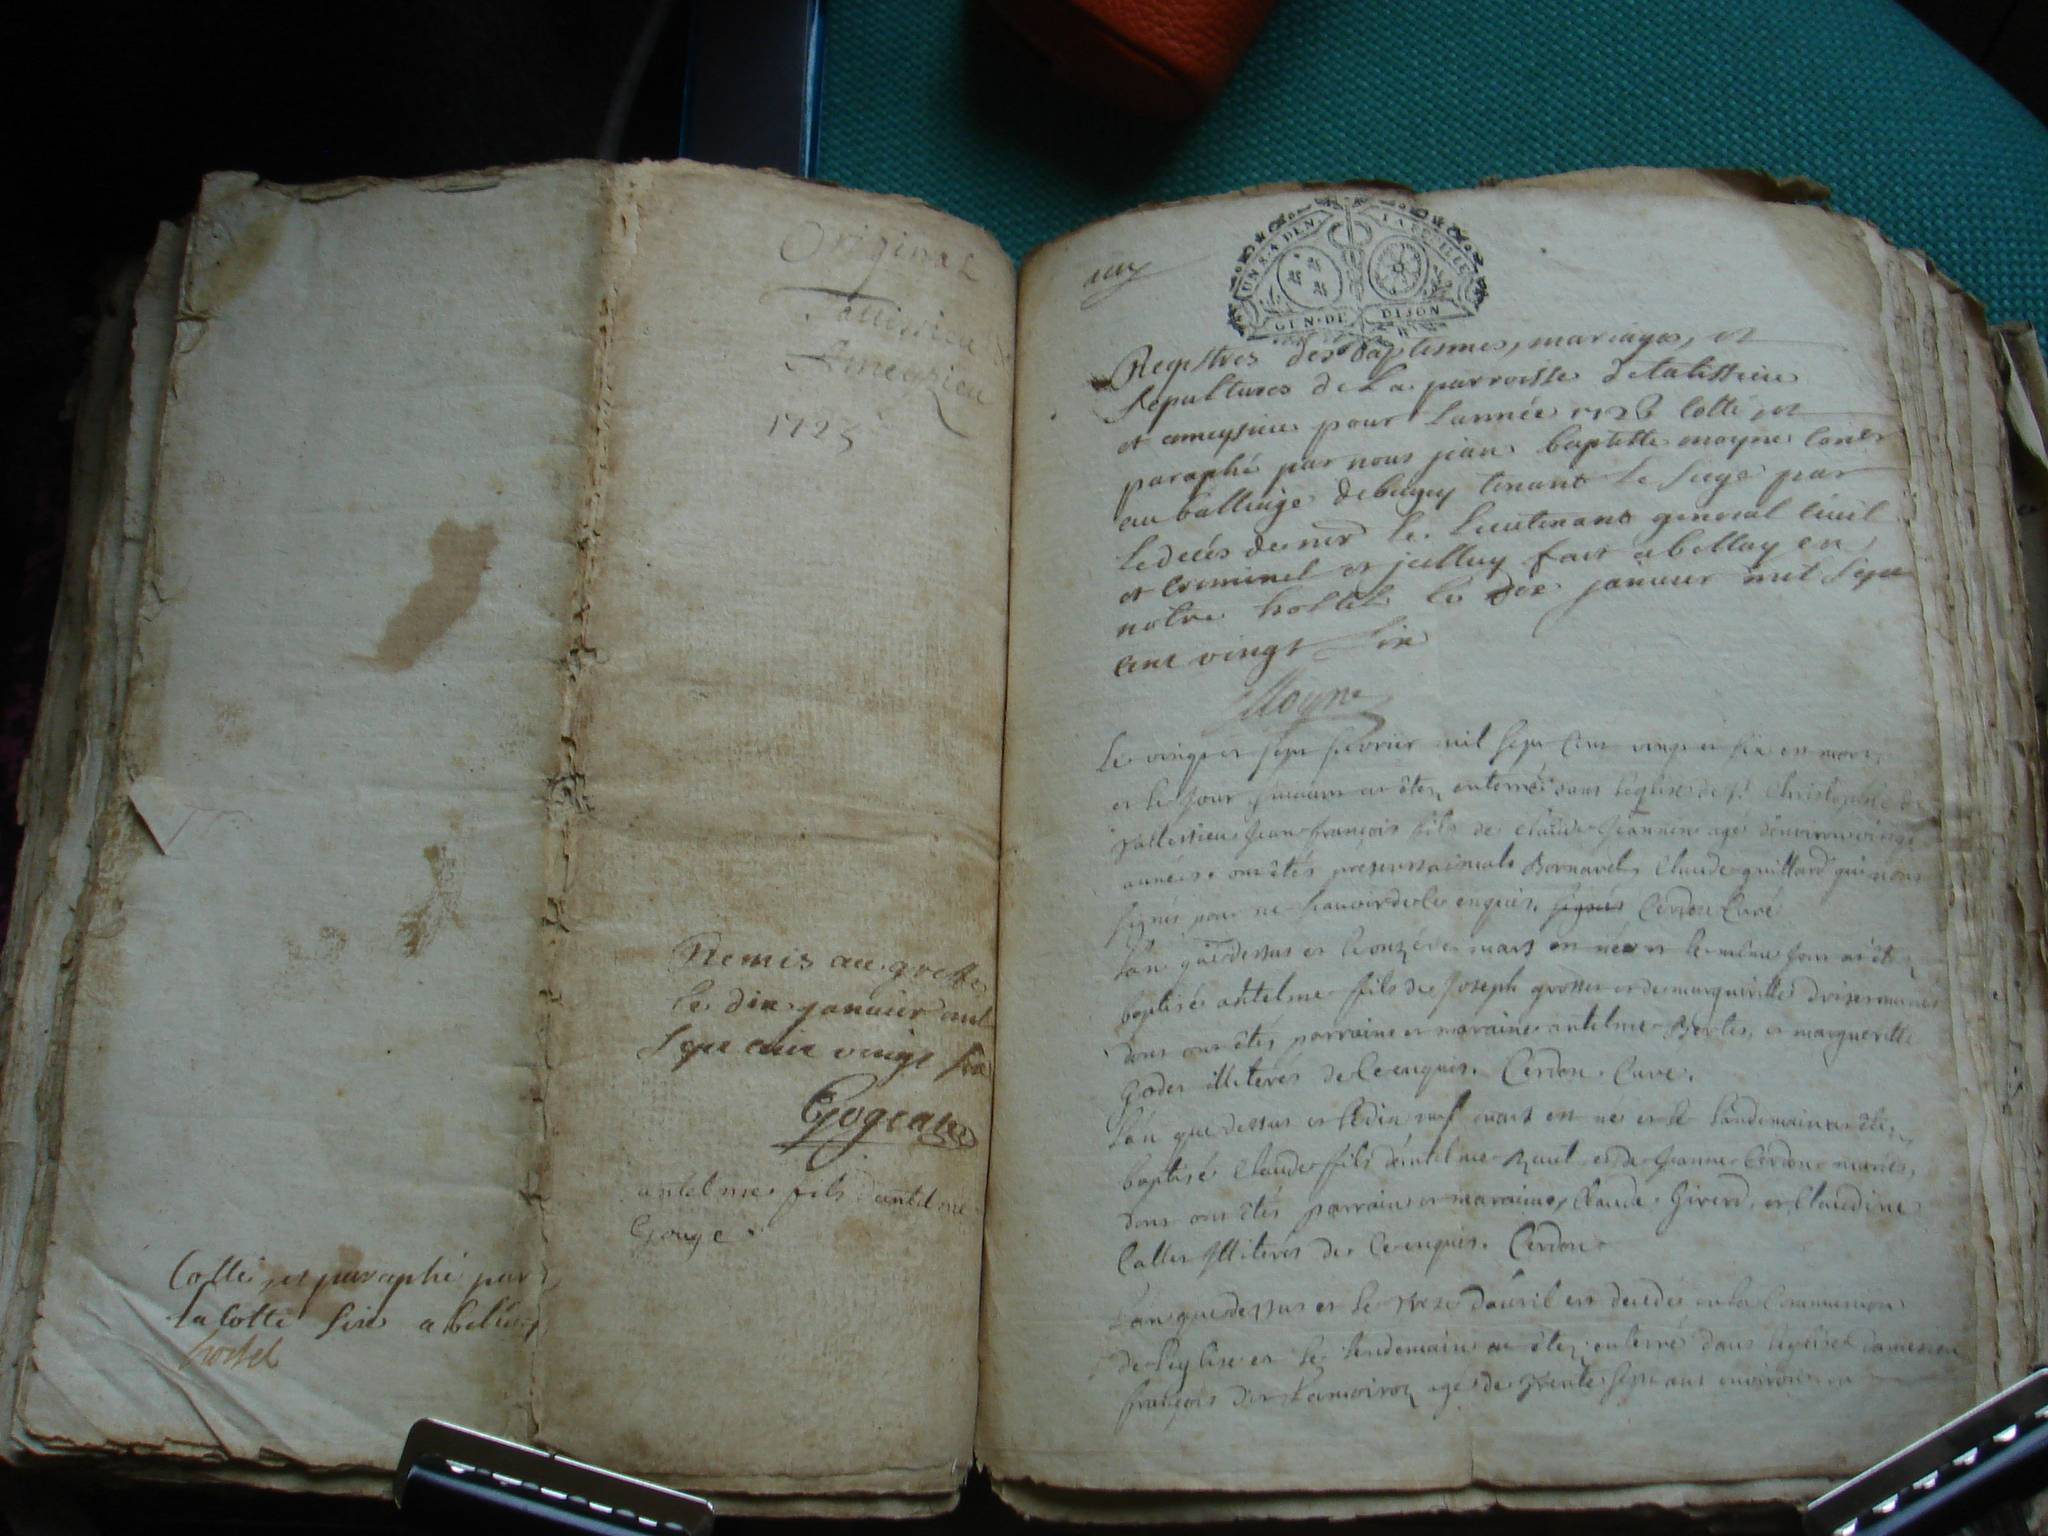 Original
Tallissieu &
Ameyzieu
1725
Remis au greffe
le dix janvier mil
sept cent vingt six
Gogean
antelme fils dantelme
Gouge
Cotté, et paraphé par
la cotte Six a belley
UN S. A DEN. LA FEUILLE
GEN. DE DIJON
Registres des baptesmes, mariages, et
Sepultures de La parroisse de talissieu
et ameysieu pour Lannée 1726 Cotté, et
paraphé par nous jean baptiste moyne Conser
au balliage de bugey tenant le siege par
le decés de mr le Lieutenant general Civil
et Criminel et fait a belley en
notre hostel le dix janvier mil sept
cent vingt Six
Moyne
Le vingt et sept fevrier mil sept cent vingt et six est mort,
et le jour suivant at êtez enterré dans leglise de st Christophle de
tallissieu Jean françois fils de Claude Jeannin agé denviron vingt
années. ont êtés presents Bornarel, Claude guillard qui nont
signés pour ne scavoir de ce enquis. Cerdon Curé
Lan que dessus et le onzé de mars est né et le même jour at êtez
baptisé antelme fils de Joseph grosset et de margueritte mariés
dont ont êtés parrain et maraine antelme Bertet, et margueritte
Godet illiterés de ce enquis. Cerdon. Curé.
Lan que dessus et le dix neuf mars est né et le landemain at êtez
baptisé Claude fils dantelme et de Jeanne Cerdon mariés,
dont ont êtés parrain et maraine, Claude Girerd, et Claudine
Callet illiterés de ce enquis. Cerdon
Lan que dessus et le treze davril est decedé en la Communion
de leglise et le lendemain at êtez enterré dans leglise dameisieu
françois dit Lamoiroz agé de trente sept ans environ